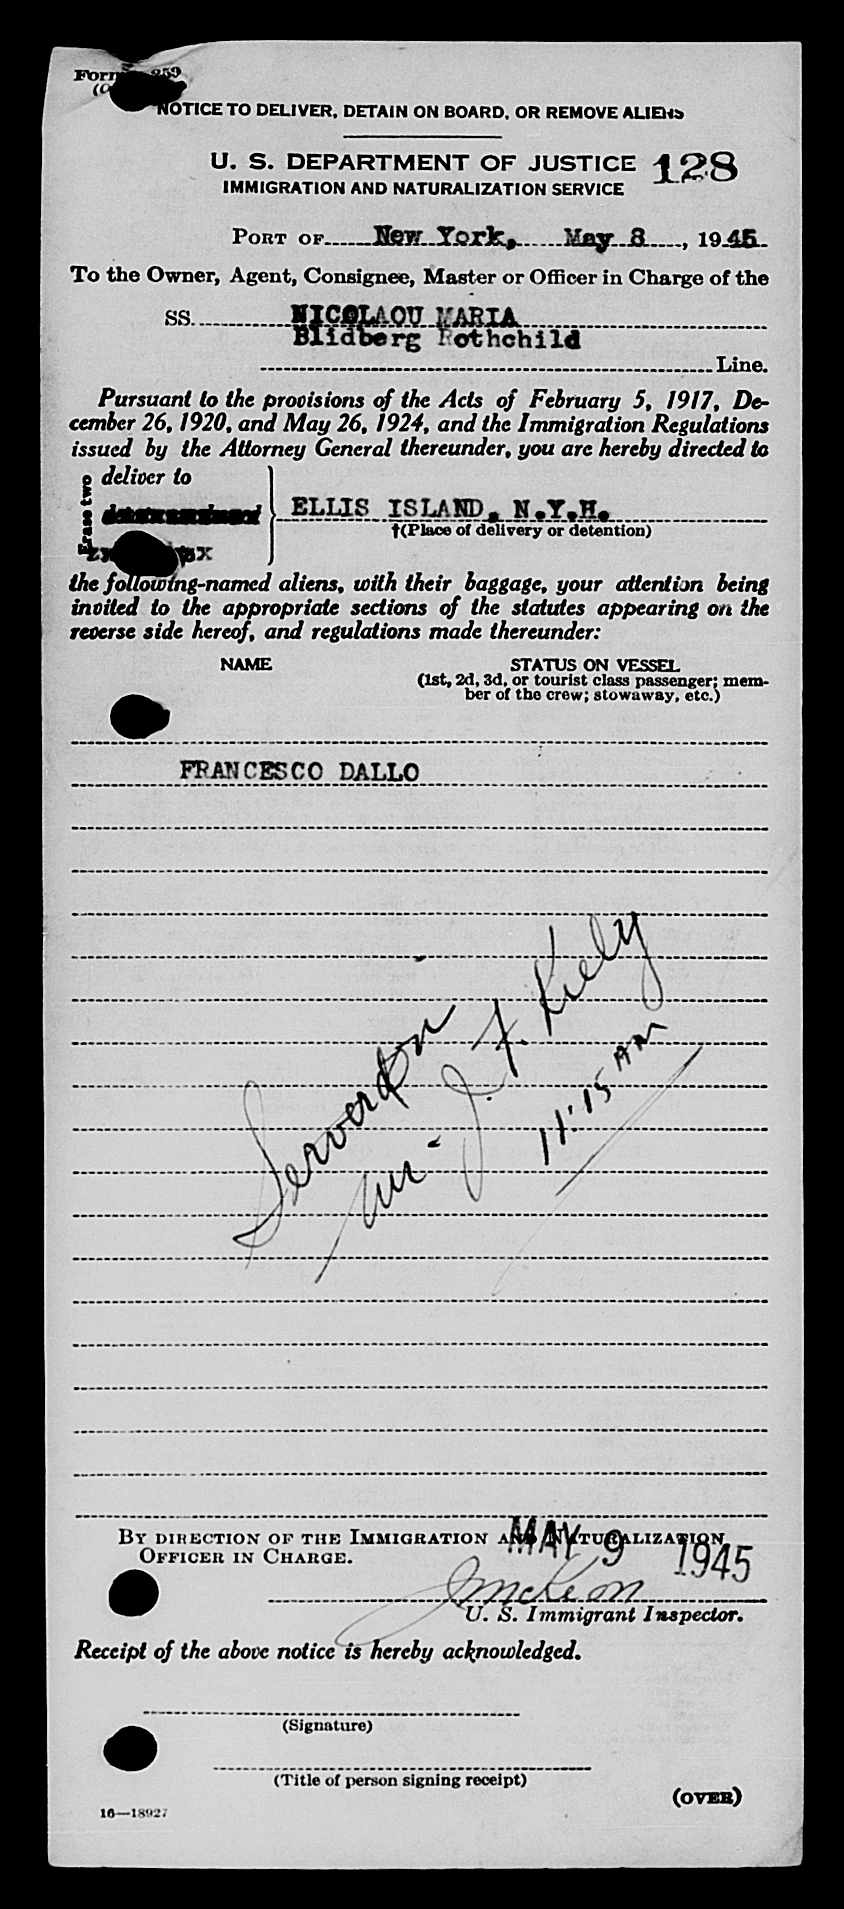 259
NOTICE TO DELIVER, DETAIN ON BOARD, OR REMOVE ALIENS
U. S. DEPARTMENT OF JUSTICE 128
IMMIGRATION AND NATURALIZATION SERVICE
PORT OF New York, May 8, 1945
To the Owner, Agent, Consignee, Master or Officer in Charge of the
SS. NICOLAOU MARIA
Blidberg Rothchild
Line.
Pursuant to the provisions of the Acts of February 5, 1917, De-
cember 26, 1920, and May 26, 1924, and the Immigration Regulations
issued by the Attorney General thereunder, you are hereby directed to
Erase two
deliver to
ELLIS ISLAND, N.Y.H.
†(Place of delivery or detention)
the following-named aliens, with their baggage, your attention being
invited to the appropriate sections of the statutes appearing on the
reverse side hereof, and regulations made thereunder:
NAME STATUS ON VESSEL
(1st, 2d, 3d, or tourist class passenger; mem-
ber of the crew; stowaway, etc.)
FRANCESCO DALLO
Served on
Mr. J. F. Kiely
11:15 AM
BY DIRECTION OF THE IMMIGRATION AND NATURALIZATION
OFFICER IN CHARGE.
MAY 9 1945
J McKeon
U. S. Immigrant Inspector.
Receipt of the above notice is hereby acknowledged.
(Signature)
(Title of person signing receipt)
(OVER)
16—18927